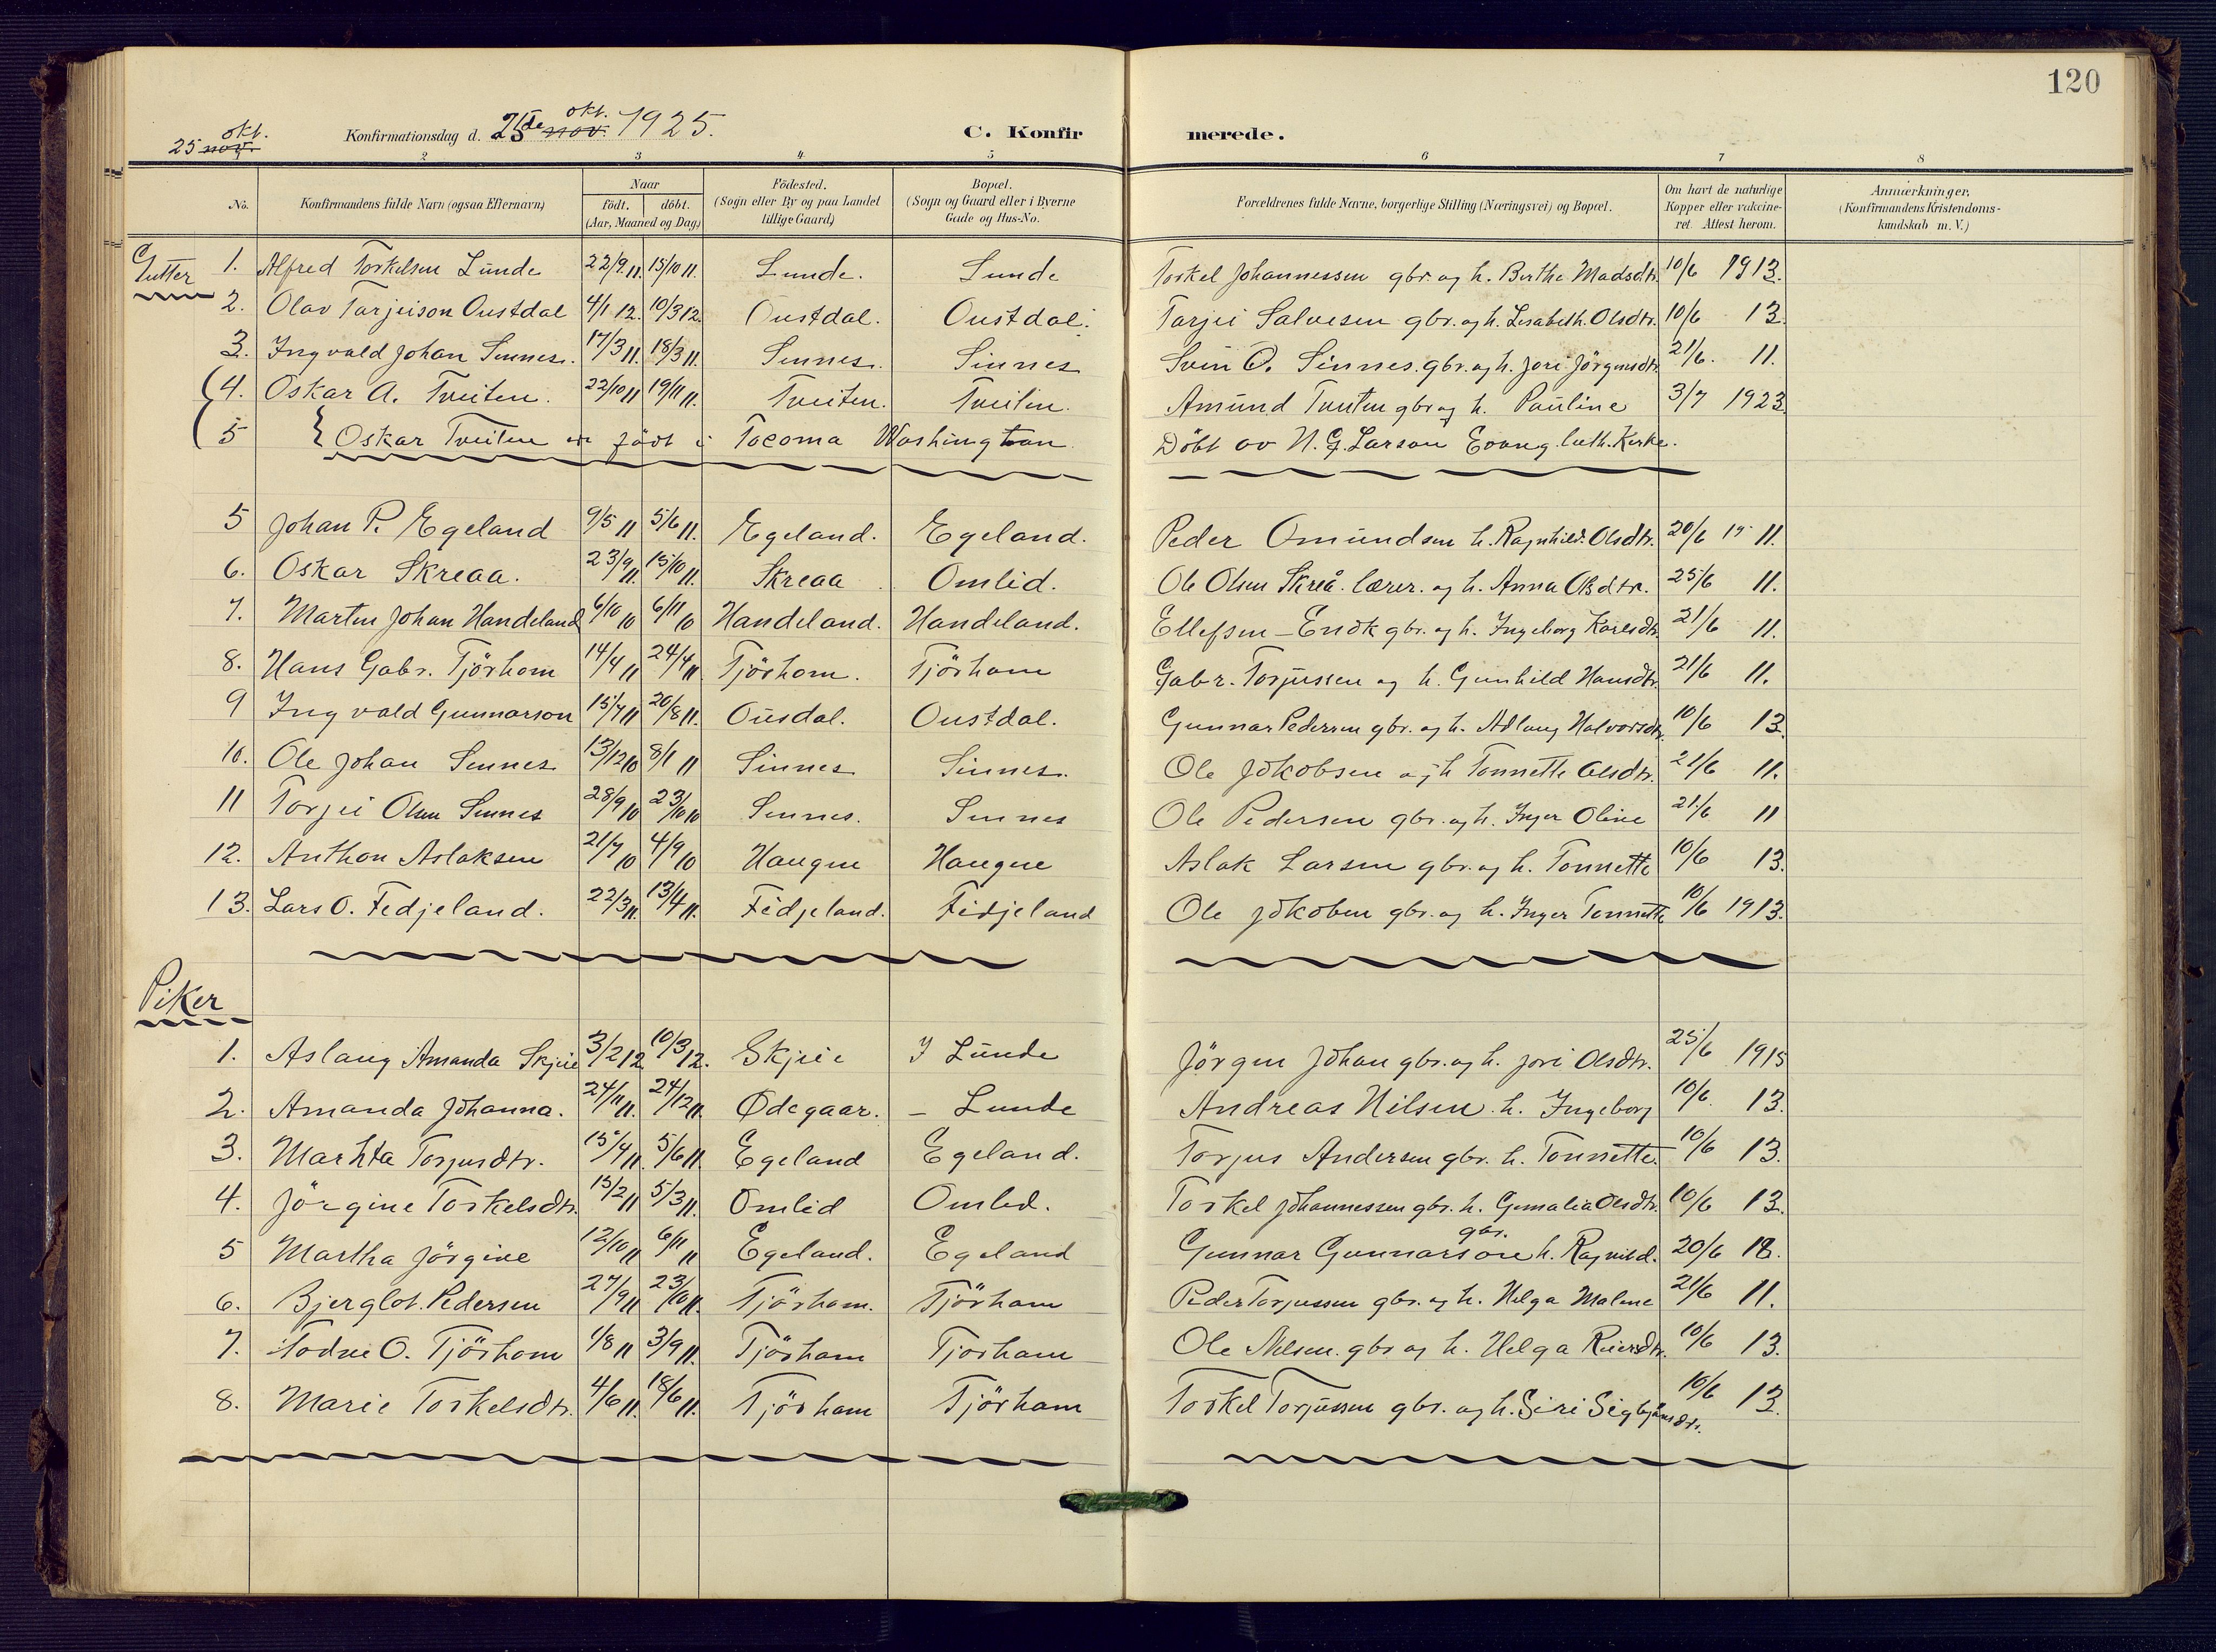 120
25 nov. okt.
Konfirmationsdag d. 25de nov. okt. 1925.
C. Konfir merede.
2 3 4 5 6 7 8
No. Konfirmandens fulde Navn (ogsaa Efternavn) Naar født. døbt. (Aar, Maaned og Dag) Fødested. (Sogn eller By og paa Landet tillige Gaard) Bopæl. (Sogn og Gaard eller i Byerne Gade og Hus-No. Forældrenes fulde Navne, borgerlige Stilling (Næringsvei) og Bopæl. Om havt de naturlige Kopper eller vakcineret. Attest herom. Anmærkninger. (Konfirmandens Kristendomskundskab m. V.)
Gutter 1. Alfred Torkelsen Lunde 22/9 11. 15/10 11. Lunde. Lunde Torkel Johannessen gbr. og h. Berthe Madsdtr. 10/6 1913.
2. Olav Tarjeison Oustdal 4/1 12. 10/3 12. Oustdal. Oustdal. Tarjei Salvesen gbr. og h. Lisabeth. Olsdtr. 10/6 13.
3. Ingvald Johan Sinnes. 17/3 11. 18/3 11. Sinnes. Sinnes Svein O. Sinnes. gbr. og h. Jori Jörgensdtr 21/6. 11.
4. Oskar A. Tveiten. 22/10 11 19/11 11. Tveiten. Tveiten. Amund Tveiten gbr og h. Pauline 3/7 1923.
5 Oskar Tveiten er født i Tocoma Washington. Döbt av N. G. Larson Evang. luth. Kirke.
5 Johan P. Egeland 9/5 11 5/6 11. Egeland. Egeland. Peder Omundsen h. Ragnhild. Olsdtr. 20/6 19 11.
6. Oskar Skreaa. 23/9 11. 15/10 11. Skreaa Omlid. Ole Olsen Skreå. lærer. og h. Anna Olsdtr. 25/6 11.
7. Martin Johan Handeland 6/10 10 6/11 10 Handeland. Handeland. Ellefsen - Endk gbr. og h. Ingeborg Karlsdtr. 21/6 11.
8. Hans Gabr. Tjörhom 14/4 11 24/4 11. Tjörhom. Tjörhom Gabr. Torjussen og h. Gunhild Hansdtr. 21/6 11.
9 Ingvald Gunnarson 15/7 11 20/8 11. Ousdal. Oustdal. Gunnar Pedersen gbr. og h. Adlaug Halvorsdtr. 10/6 13.
10. Ole Johan Sinnes 13/12 10 8/1 11 Sinnes Sinnes. Ole Jokobsen og h Tonnette Olsdtr. 21/6 11.
11 Torjei Olsen Sinnes 28/9 10 23/10 10 Sinnes. Sinnes Ole Pedersen gbr. og h. Inger Oline 21/6 11
12. Anthon Aslaksen 21/7 10 4/9 10 Haugen Haugen Aslak Larsen gbr. og h. Tonnette 10/6 13.
13. Lars O. Fedjeland. 22/3 11. 13/4 11. Fidjeland. Fidjeland Ole Jokoben gbr. og h. Inger Tonnette 10/6 1913.
Piker
1. Aslaug Amanda Skjeie 3/2 12 10/3 12. Skjeie I Lunde Jörgen Johan gbr. og h. Jori Olsdtr. 25/6 1915
2. Amanda Johanna. 24/11 11. 24/12 11. Ødegaar. - Lunde Andreas Nilsen. h. Ingeborg 10/6. 13.
3. Marhta Torjusdtr. 15/4 11. 5/6 11. Egeland Egeland. Torjus Andersen gbr. h. Tonnette. 10/6 13.
4. Jörgine Torkelsdtr. 15/2 11 5/3 11. Omlid Omlid. Torkel Johannessen gbr. h. Gemalia Olsdtr. 10/6 13.
5 Martha Jörgine 12/10 11 6/11 11 Egeland. Egeland Gunnar Gunnarson gbr. h. Ragnild. 20/6 18.
6. Bjerglot. Pedersen 27/9 11 23/10 11. Tjörhom. Tjörhom Peder Torjussen gbr. og h. Helga Malene 21/6 11.
7. Todne O. Tjörhom 1/8 11 3/9 11. Tjörhom Tjorhom Ole Nilsen. gbr og h. Helga Reiersdtr. 10/6 13.
8. Marie Torkelsdtr. 4/6 11. 18/6 11. Tjörhom Tjörhom Torkel Torjussen gbr. og h. Siri Sigbjönsdtr. 10/6 13.